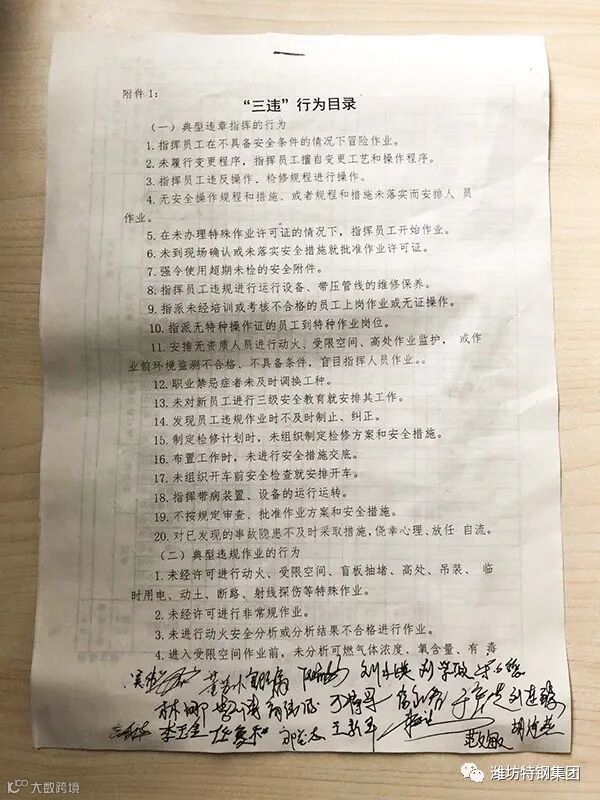 附件1:
“三违”行为目录
（一）典型违章指挥的行为
1. 指挥员工在不具备安全条件的情况下冒险作业。
2. 未履行变更程序，指挥员工擅自变更工艺和操作程序。
3. 指挥员工违反操作、检修规程进行操作。
4. 无安全操作规程和措施、或者规程和措施未落实而安排人 员
作业。
5. 在未办理特殊作业许可证的情况下，指挥员工开始作业。
6. 未到现场确认或未落实安全措施就批准作业许可证。
7. 强令使用超期未检的安全附件。
8. 指挥员工违规进行运行设备、带压管线的维修保养。
9. 指派未经培训或考核不合格的员工上岗作业或无证操作。
10. 指派无特种操作证的员工到特种作业岗位。
11. 安排无资质人员进行动火、受限空间、高处作业监护， 或作
业前环境监测不合格、不具备条件，盲目指挥人员作业。。
12. 职业禁忌症者未及时调换工种。
13. 未对新员工进行三级安全教育就安排其工作。
14. 发现员工违规作业时不及时制止、纠正。
15. 制定检修计划时，未组织制定检修方案和安全措施。
16. 布置工作时，未进行安全措施交底。
17. 未组织开车前安全检查就安排开车。
18. 指挥带病装置、设备的运行运转。
19. 不按规定审查、批准作业方案和安全措施。
20. 对已发现的事故隐患不及时采取措施,侥幸心理、放任 自流。
（二）典型违规作业的行为
1. 未经许可进行动火、受限空间、盲板抽堵、高处、吊装、 临
时用电、动土、断路、射线探伤等特殊作业。
2. 未经许可进行非常规作业。
3. 未进行动火安全分析或分析结果不合格进行作业。
4. 进入受限空间作业前，未分析可燃气体浓度、氧含量、有 毒
林娜
王新军
大数跨境
潍坊特钢集团